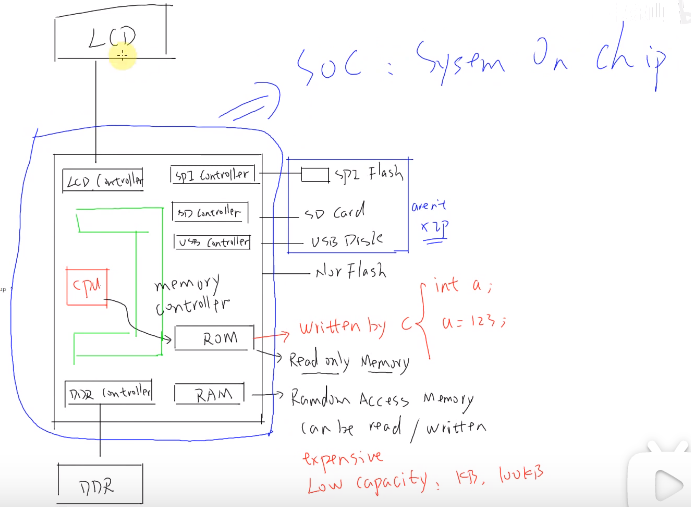 LCD
SOC : Sysem On chip
LCD Controller
SPI Controller
SPI Flash
SD Controller
SD Card
USB Controller
USB Diskle
aren't
XIP
Nor Flash
CPU
memory
controller
ROM
written by C
int a;
a = 123;
Read only Memory
DDR Controller
RAM
Ramdom Access Memory
can be read / written
expensive
Low capacity: KB, 100KB
DDR